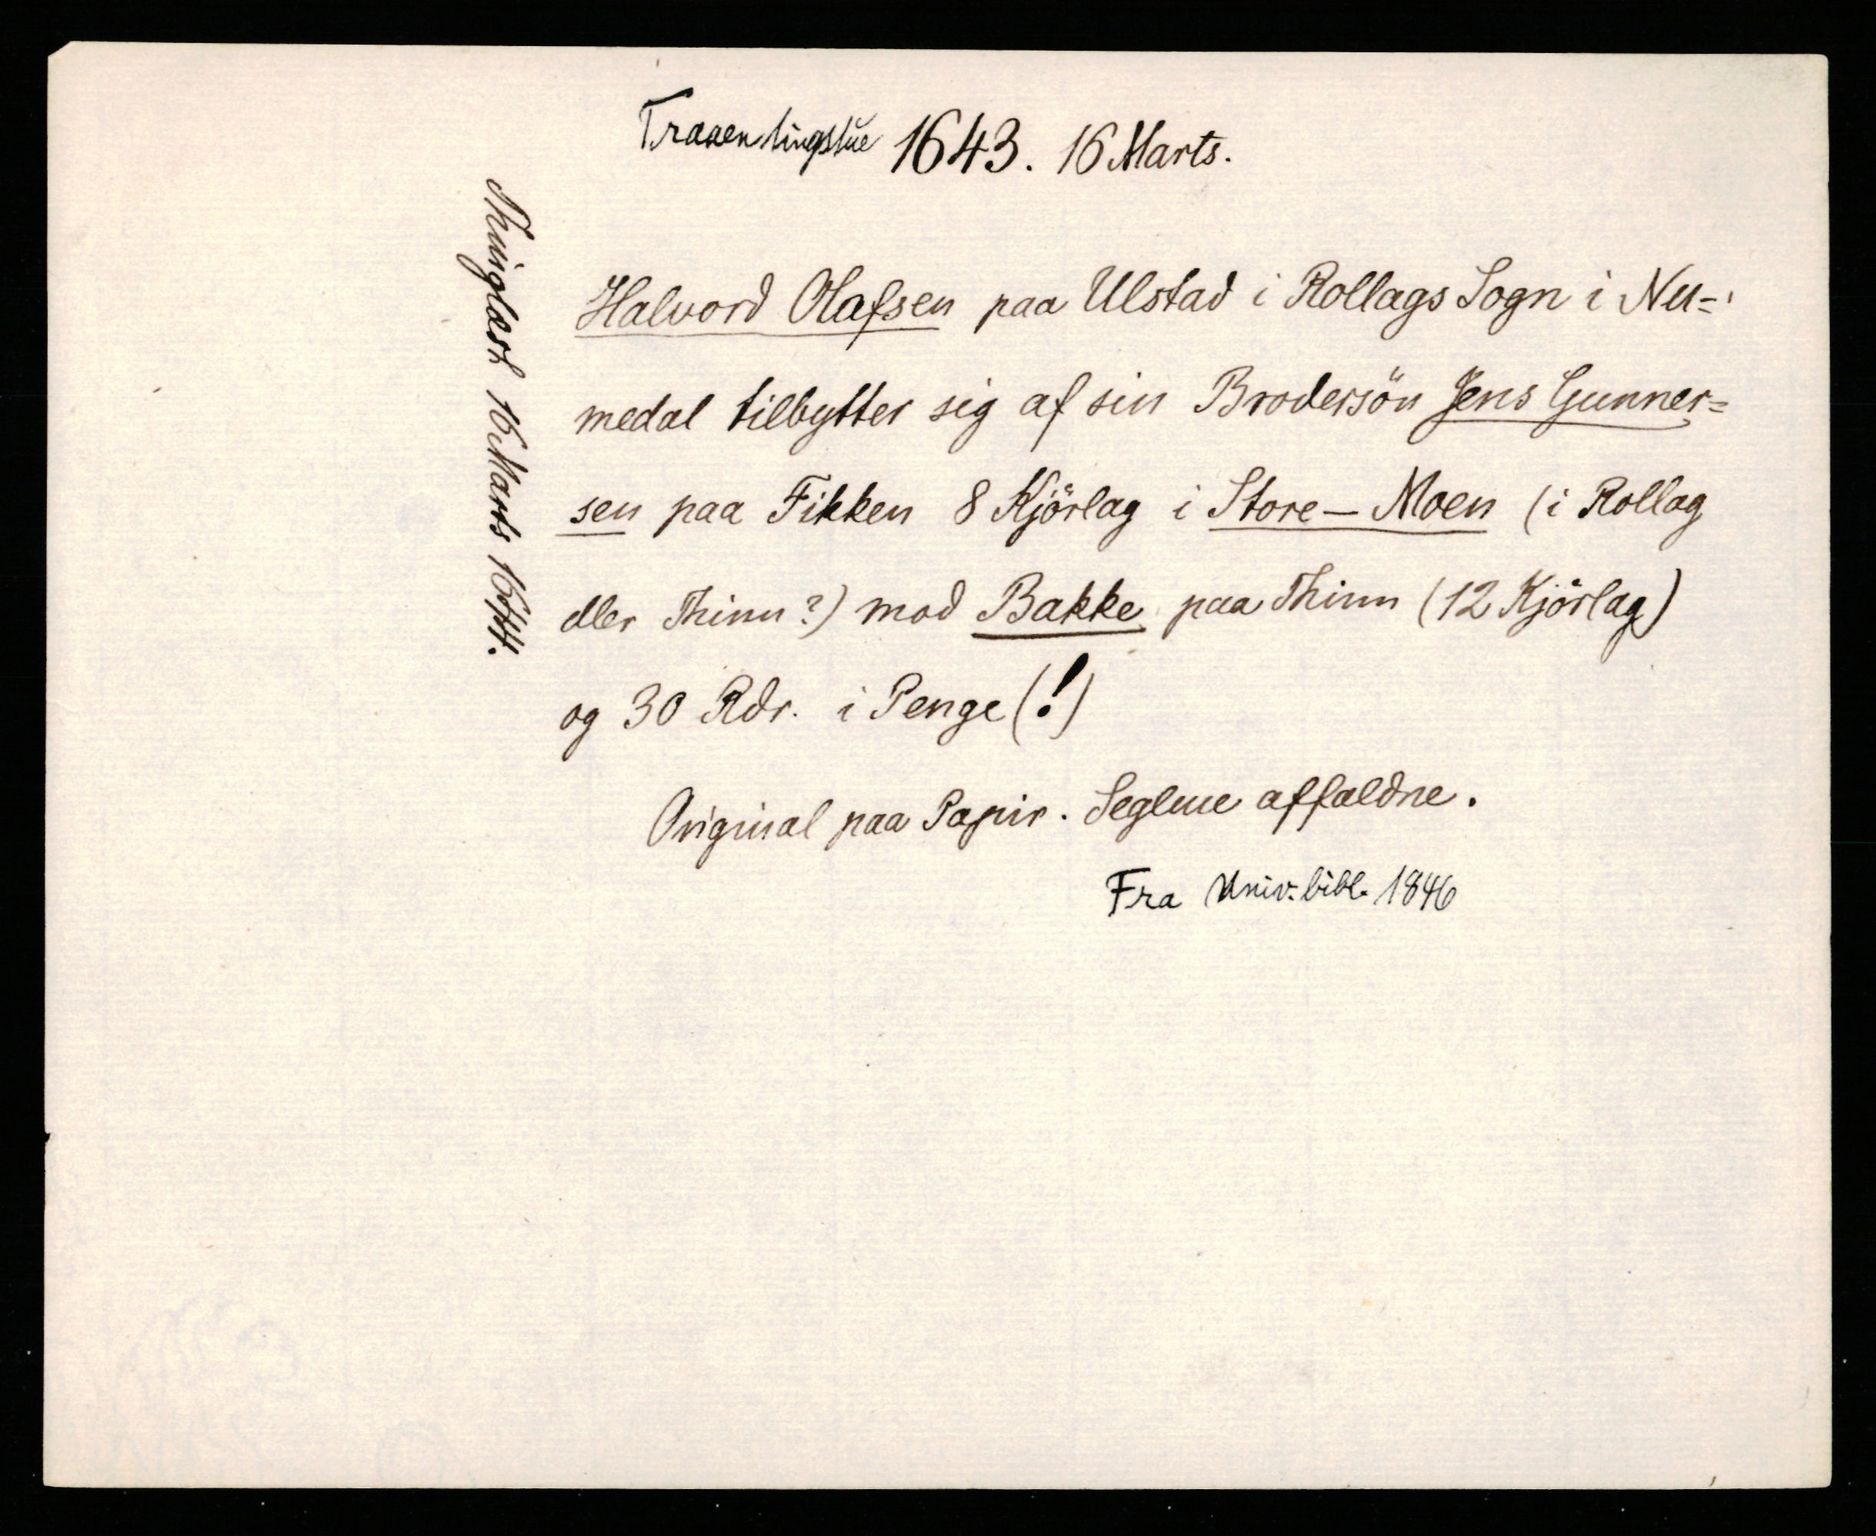 Traaen tingstue 1643. 16 Marts.
Thinglæst 16 Marts 1644.
Halvord Olafsen paa Ulstad i Rollags Sogn i Nu-
medal tilbytter sig af sin Brodersön Jens Gunner=
sen paa Fikken 8 Kjörlag i Store-Moen (i Rollag
eller Thinn?) mod Bakke paa Thinn (12 Kjörlag)
og 30 Rdr. i Penge (!)
Original paa Papir. Seglene affaldne.
Fra Univ. bibl. 1846